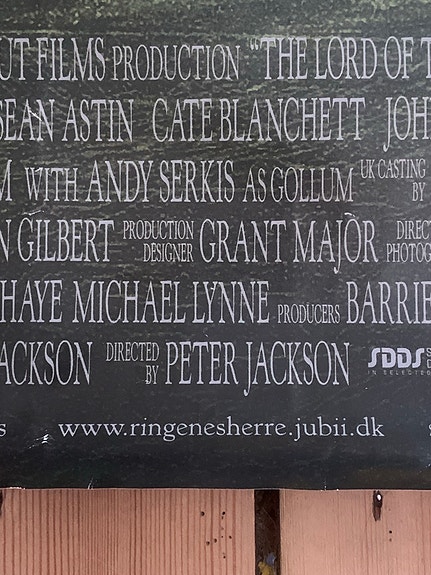 UT FILMS PRODUCTION "THE LORD OF T
SEAN ASTIN CATE BLANCHETT JOH
M WITH ANDY SERKIS AS GOLLUM UK CASTING BY
N GILBERT PRODUCTION DESIGNER GRANT MAJOR DIRECT PHOTOG
HAYE MICHAEL LYNNE PRODUCERS BARRIE
ACKSON DIRECTED BY PETER JACKSON SDDS IN SELECTED
www.ringenesherre.jubii.dk